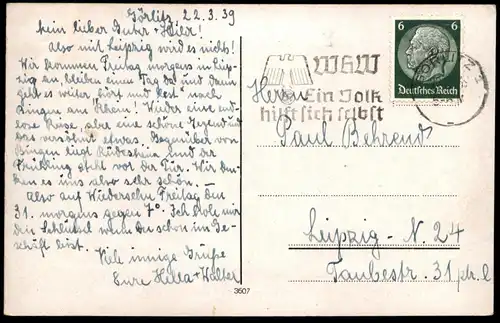 Görlitz 22.3.39
Mein lieber Guhr +
Also mit Leipzig wird es nicht!
Wir kommen Freitag morgens in Leip-
zig an, bleiben einen Tag da und dann
geht es weiter, hört und nach
Bingen am Rhein! Wieder eine end-
lose Reise, aber eine schöne Gegend und
das versöhnt etwas. Gegenüber von
Bingen liegt Rüdesheim und der
Frühling steht vor der Tür. Wir den-
ken es uns also sehr schön. –
also auf Wiedersehn Freitag den
31. morgens gegen 7°. Ich hole mir
den Schlüssel wenn du schon im Ge-
schäft bist.
Viele innige Grüße
Eure Hella + Walter
3607
WHW
Ein Volk
hilft sich selbst
6 6
Deutsches Reich
Herrn
Paul Behrend
Leipzig - N. 24
Taubestr. 31 ptr. l